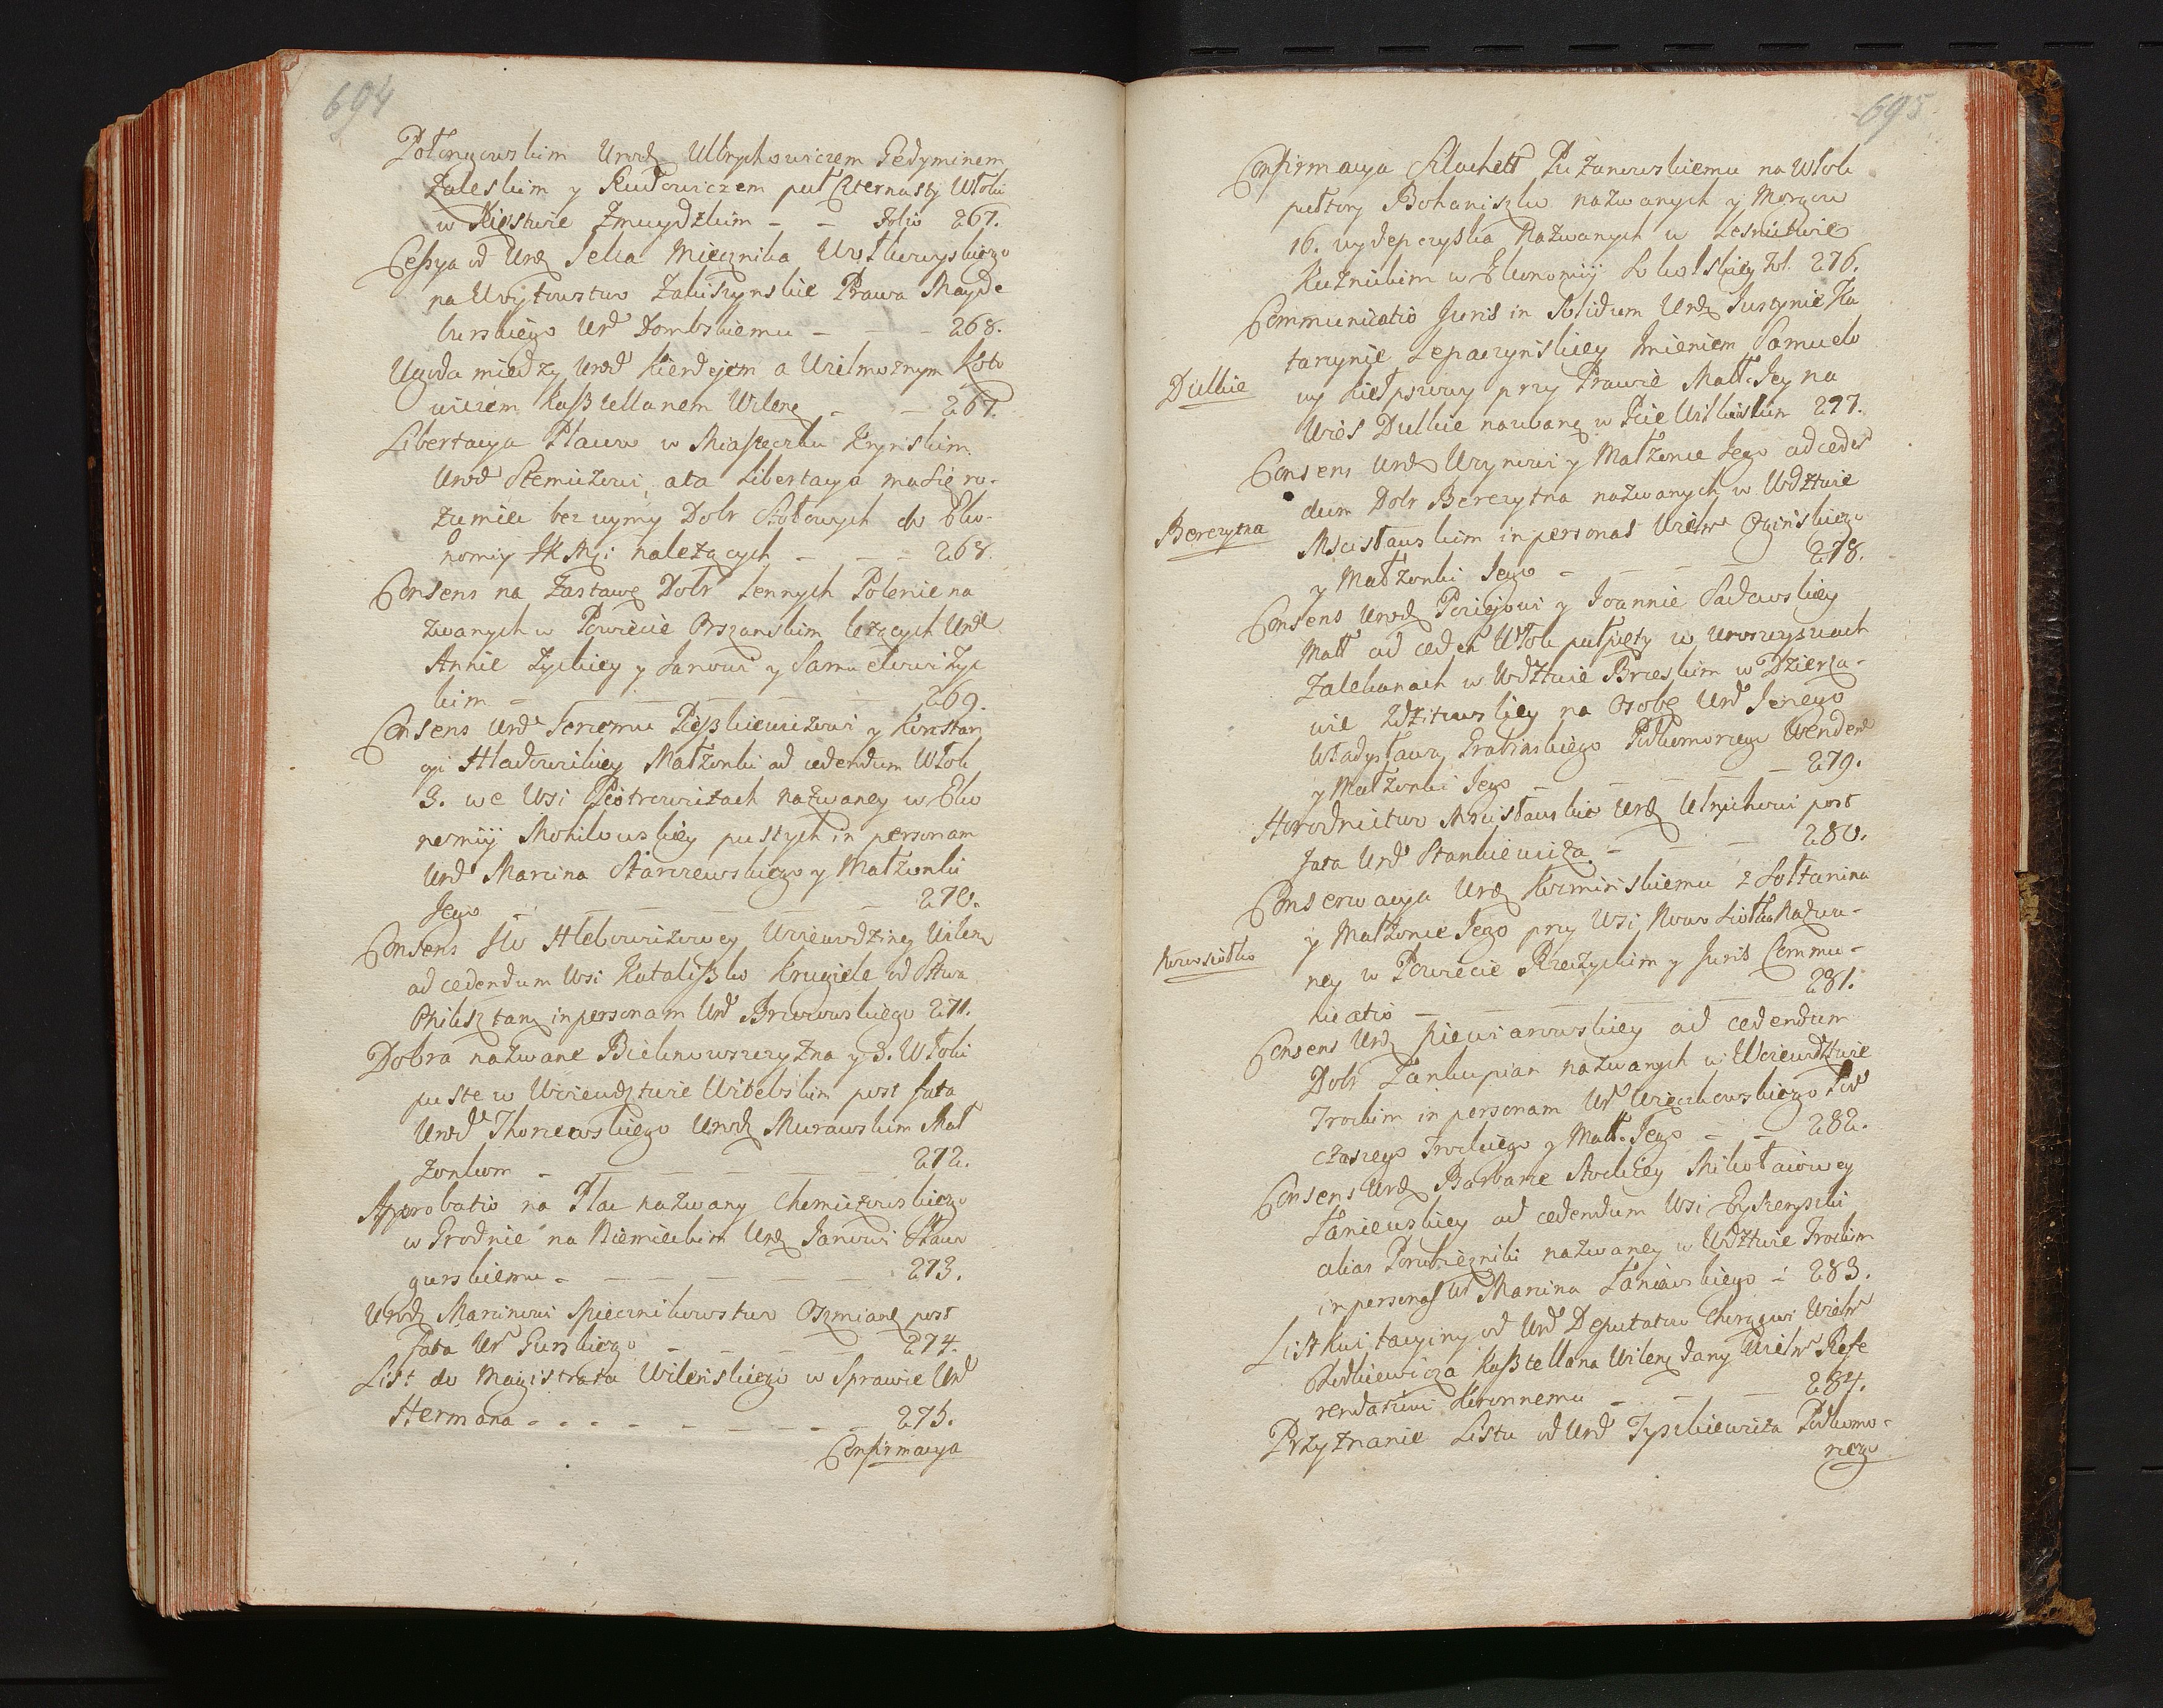 694
Połongowskim Urodz Ulbrychowiczem Gedyminem
Zaleskim y Rudowiczem puł Czternasty Włoki
w Xięstwie Zmuydzkim - - Folio 267.
Cessya od Urdz Jelca Miecznika Wołkowyskiego
na Woytowstwo Zabiszynskie Prawa Mayde
burskiego Urd Dombskiemu - - - 268.
Ugoda między Urod Kierdejem a Wielmoznym Koto
wiczem Kasztellanem Wileng - - 267.
Libertacya Placu w Miasteczku Krynskim
Urod Stemizowi, ata Libertacya ma się ro-
zumieć bez uymy Dobr Stołowych do Eko-
nomiy JKMci nalezących - - - 268.
Consens na Zastawę Dobr Lennych Polenie na
zwanych w Powiecie Orszanskim lezących Urd
Annie Zyckiey y Janowi y Samuelowi Zyc
kim - - - - - - 269.
Consens Urd Jerzemu Pieszkiewiczowi y Konstan
cyi Hladowickiey Małzonki ad cedendum Włok
3. we Wsi Piotrowiczach nazwaney w Eko
nomiiy Mohilowskiey pustych in personam
Urd Marcina Starzewskiego y Małzonki
Jego - - - - - - 270.
Consens JW Hlebowiczowey Woiewodziney Wilen
ad cedendum Wsi Kataliszko Krugiele od Stwa
Philisztang in personam Urd Brzozowskiego 271.
Dobra nazwane Bielinowszczyzna y 3. Włoki
puste w Woiewdztwie Witebskim post fata
Urod Thorzewskiego Urodz Murawskim Mał
zonkom - - - - - - 272.
Approbatio na Plac nazwany Chomiczowskiego
w Grodnie na Niemieckim Urdz Janowi Staw
gurskiemu - - - - - 273.
Urodz Marcinowi Miecznikowstwo Oszmianę post
fata Ur Gurskiego - - - - - 274.
List do Magistratu Wilenskiego w Sprawie Urd
Hermana - - - - - - - - - 275.
Confirmacya
695
Confirmacya Szlachett Puzanowskiemu na Włok
pułtory Bohaniszko nazwanych y Morgow
16. wydepczyska Nazwanych w Lesnictwie
Kuznickim w Ekonomiy Sokolskiey Fol. 276.
Communicatio Juris in Solidum Urdz Justynie Ka
tarzynie Lepaczynskiey Imieniem Samuelo
wy Kiełpszowy przy Prawie Małł. Jey na
Dulkie
Wieś Dulkie nazwaną w Pcie Wiłkomskim 277.
Consens Urdz Uzynowi y Małzonce Jego ad ceden
dum Dobr Berezytna nazwanych w Wdztwie
Berezytna
Mscisławskim in personas Wielm Oginskiego
y Małzonki Jego - - - - - 278.
Consens Urodz Pociejowi y Joannie Sadowskiey
Małł ad ceden Włok pułpięty w Uroczyszczach
Zalekanach w Wdztwie Brzeskim w Dzierza-
wie Zdzitowskiey na Osobę Urd Jerzego
Władysława Grabinskiego Podkomorzego Wenden
y Małzonki Jego - - - - - 279.
Horodnictwo Mscisławskie Urdz Ulnickowi post
fata Urd Stankiewicza - - - - 280.
Conserwacya Urdz Kozminskiemu z Sołtanina
y Małzonce Jego przy Wsi Nowosiołka Nazwa-
Nowosiołko
ney w Powiecie Rzeczyckim y Juris Commu-
nicatio - - - - - - 281.
Consens Urdz Kiewianowskiey ad cedendum
Dobr Lankupian nazwanych w Woiewdztwie
Trockim in personam Ur Więckowskiego Pod
czaszego Trockiego y Małł. Jego - - 282.
Consens Urdz Barbarze Stockiey Mikołaiowey
Laniewskiey ad cedendum Wsi Eyszeryszki
alias Powbiezniki nazwaney w Wdztwie Trockim
in personas Ur Marcina Laniewskiego - 283.
List Kwitacyiny od Urd Deputatow Chorągwi Wielm
Chodkiewicza Kasztellana Wileng dany Wielm Refe
rendarzowi Koronnemu - - - - 284.
Przyznanie Listu od Urd Tyszkiewicza Podkomo-
rzego